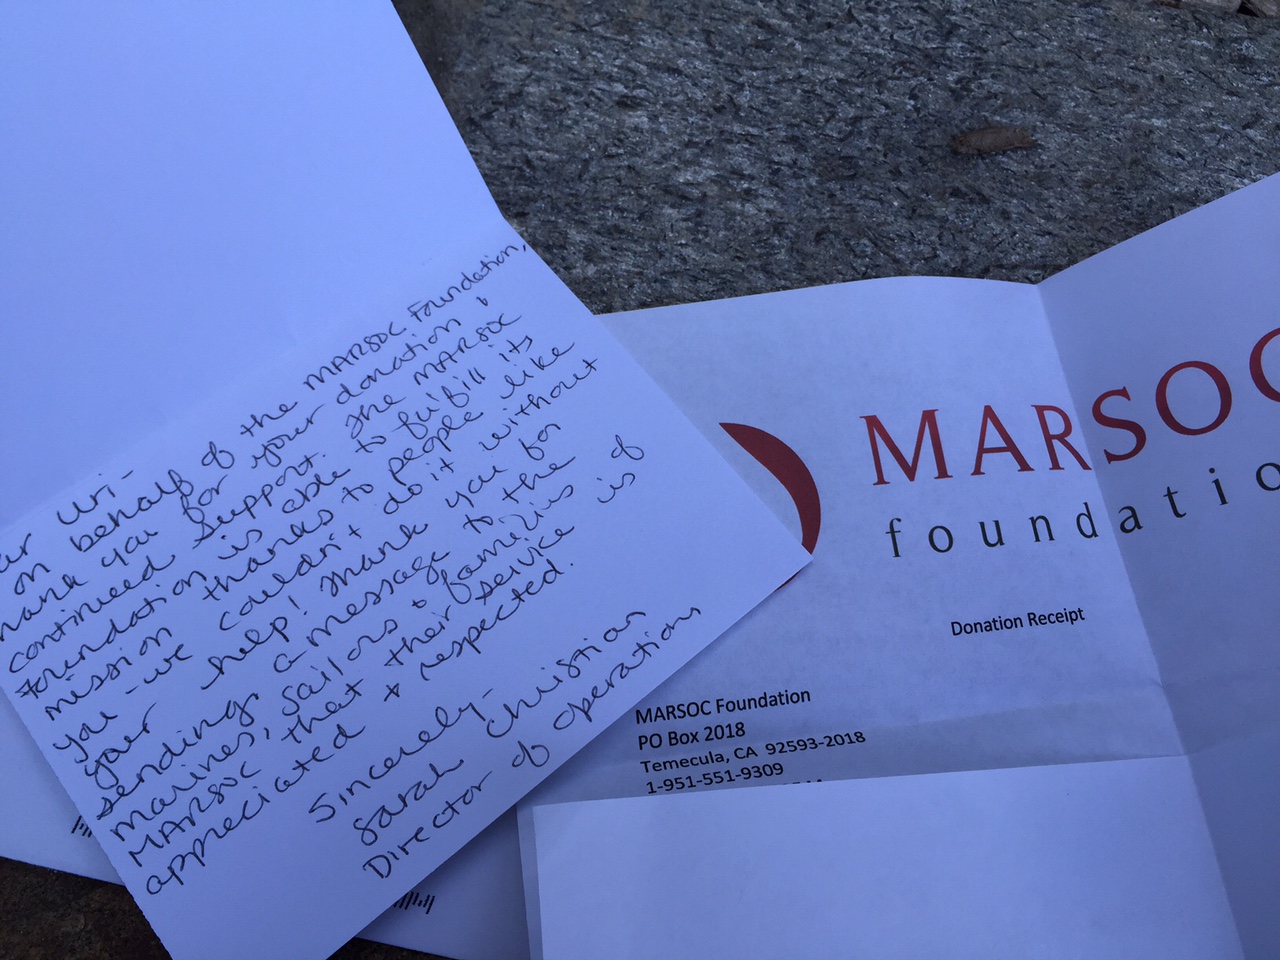 ar Uri-
on behalf of the MARSOC Foundation,
hank you for your donation &
continued support. The MARSOC
Foundation is able to fulfill its
mission thanks to people like
you - we couldn't do it without
your help! Thank you for
sending a message to the
Marines, Sailors & families of
MARSOC that their service is
appreciated & respected.
Sincerely-
Sarah Christian
Director of Operations
MARSOC
foundatio
Donation Receipt
MARSOC Foundation
PO Box 2018
Temecula, CA 92593-2018
1-951-551-9309